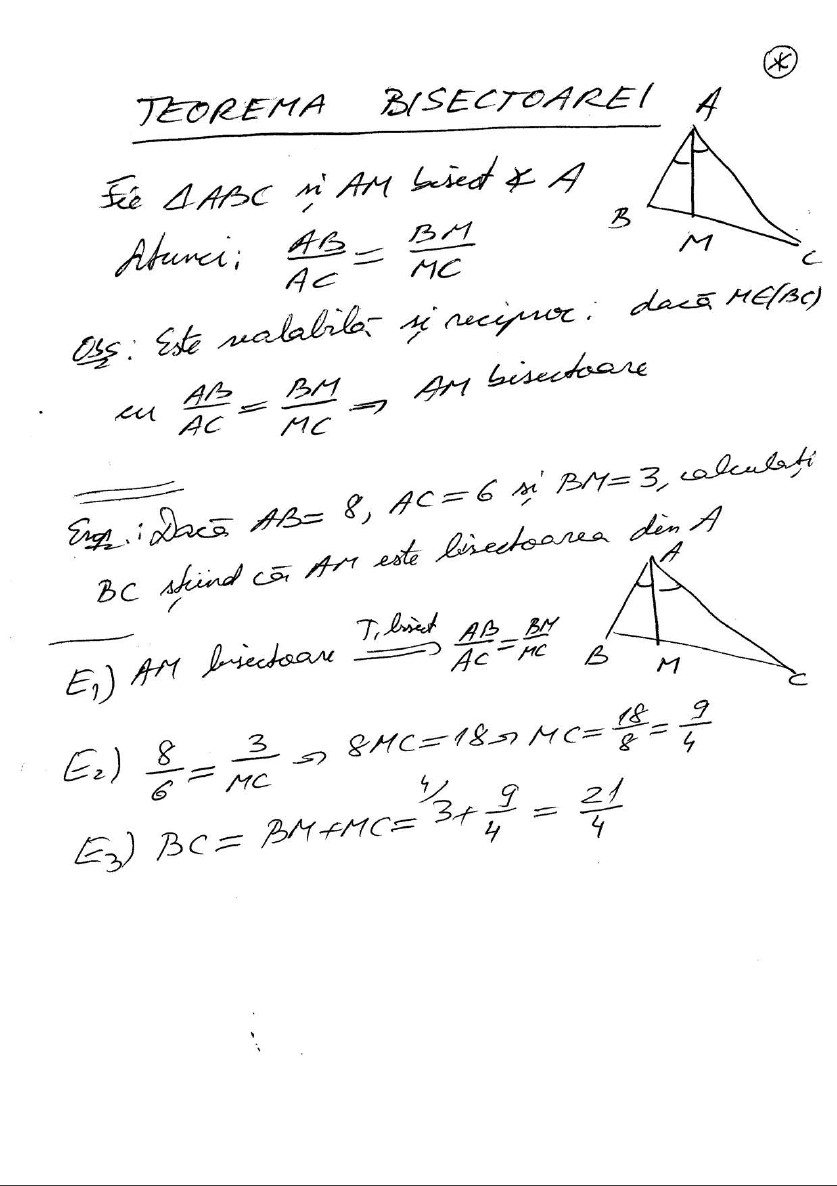 *
TEOREMA BISECTOAREI
A
B
M
C
Fie ΔABC și AM bisect ∢ A
Atunci: AB/AC = BM/MC
Obs: Este valabilă și reciproc: dacă M∈(BC)
cu AB/AC = BM/MC ⇒ AM bisectoare
Dacă AB= 8, AC=6 și BM=3, calculați
BC știind că AM este bisectoarea din A
A
B
M
C
E1) AM bisectoare T, bisect ⟹ AB/AC = BM/MC
E2) 8/6 = 3/MC ⇒ 8MC=18 ⇒ MC= 18/8 = 9/4
E3) BC= BM+MC= 4/3+ 9/4 = 21/4